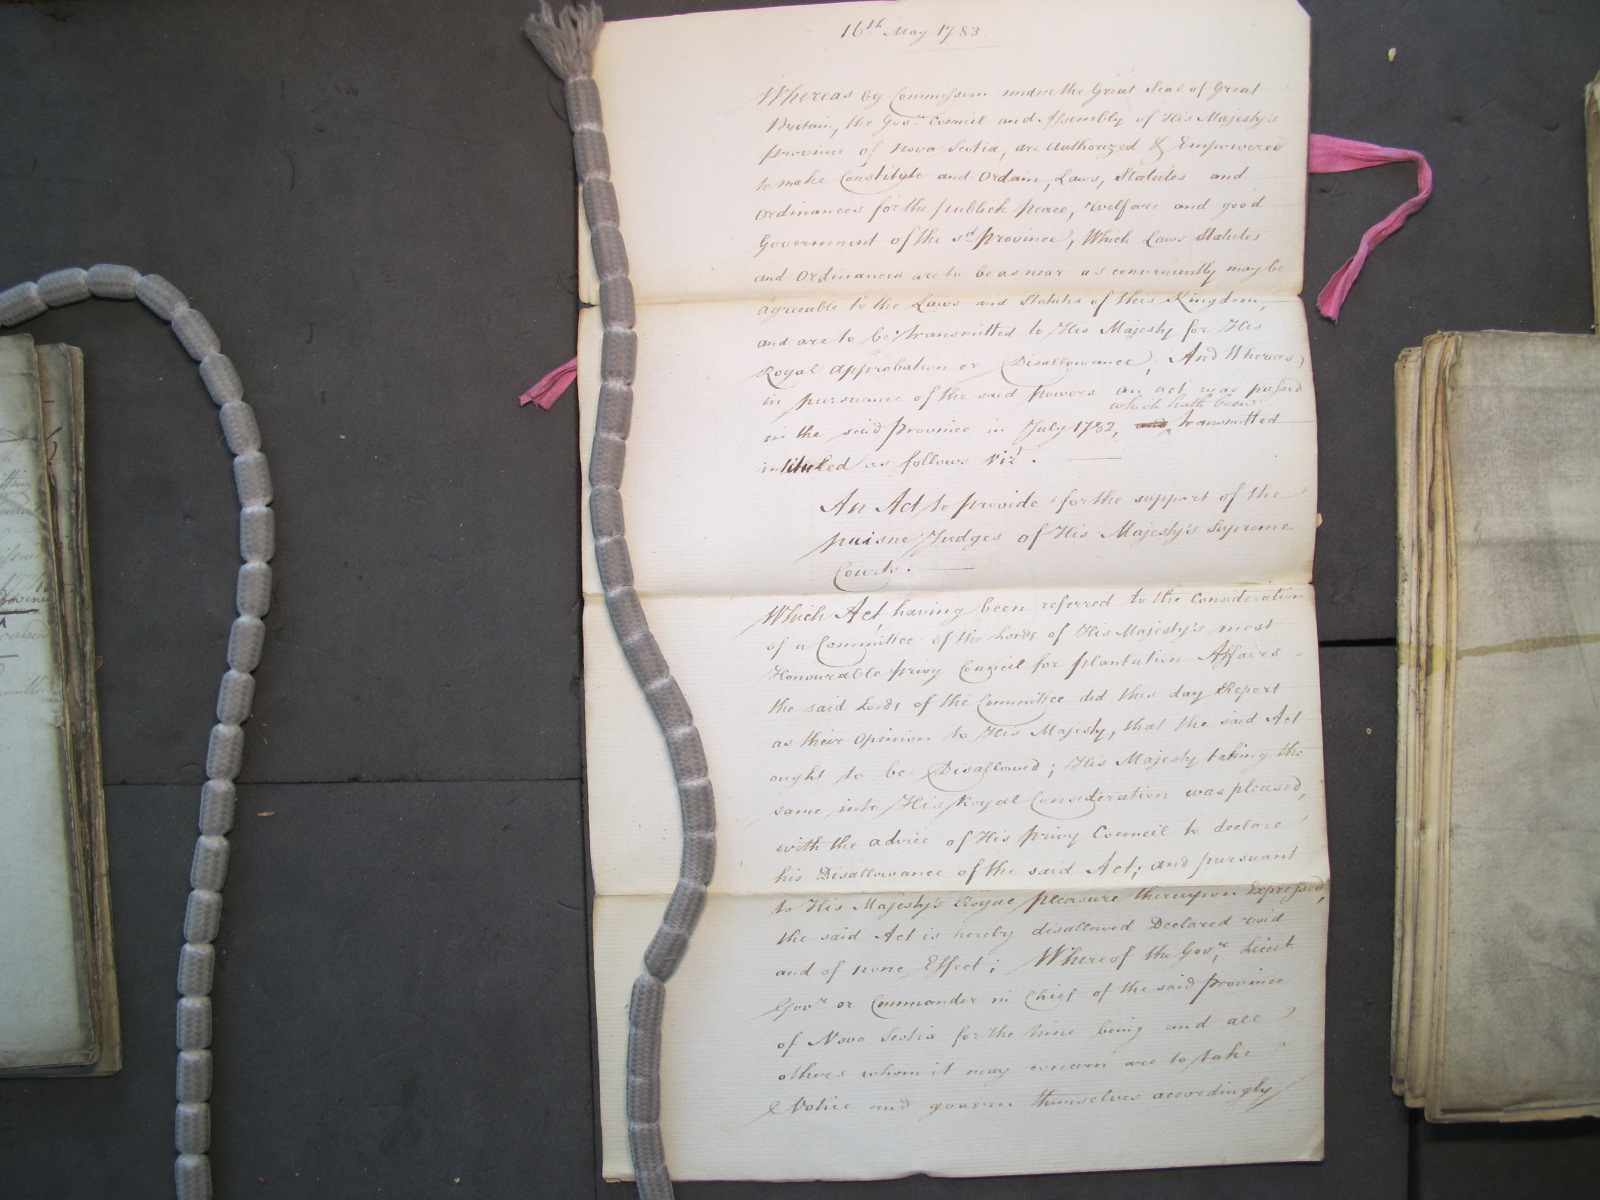 16th May 1783
Whereas by Commission under the Great Seal of Great
Britain, the Govr. Council and Assembly of His Majesty's
Province of Nova Scotia, are Authorized & Empowered
to make Constitute and Ordain, Laws, Statutes and
Ordinances for the publick Peace, Welfare and good
Government of the sd. Province, Which Laws Statutes
and Ordinances are to be as near as conveniently may be
agreeable to the Laws and Statutes of this Kingdom,
and are to be transmitted to His Majesty for His
Royal Approbation or Disallowance; And Whereas
in pursuance of the said Powers an act was passed
which hath been
in the said Province in July 1782, and transmitted
intituled as follows Vizt.
An Act to provide for the support of the
puisne Judges of His Majesty's Supreme
Courts.
Which Act, having been referred to the Consideration
of a Committee of the Lords of His Majesty's most
Honourable Privy Council for plantation Affairs
the said Lords of the Committee did this day Report
as their Opinion to His Majesty, that the said Act
ought to be Disallowed; His Majesty taking the
same into His Royal Consideration was pleased,
with the advice of His Privy Council to declare
his Disallowance of the said Act; and pursuant
to His Majesty's Royal pleasure thereupon Expressed,
the said Act is hereby disallowed Declared void
and of none Effect; Whereof the Govr. Lieut.
Govr. or Commander in Chief of the said Province
of Nova Scotia for the time being and all
others whom it may concern are to take
Notice and govern themselves accordingly